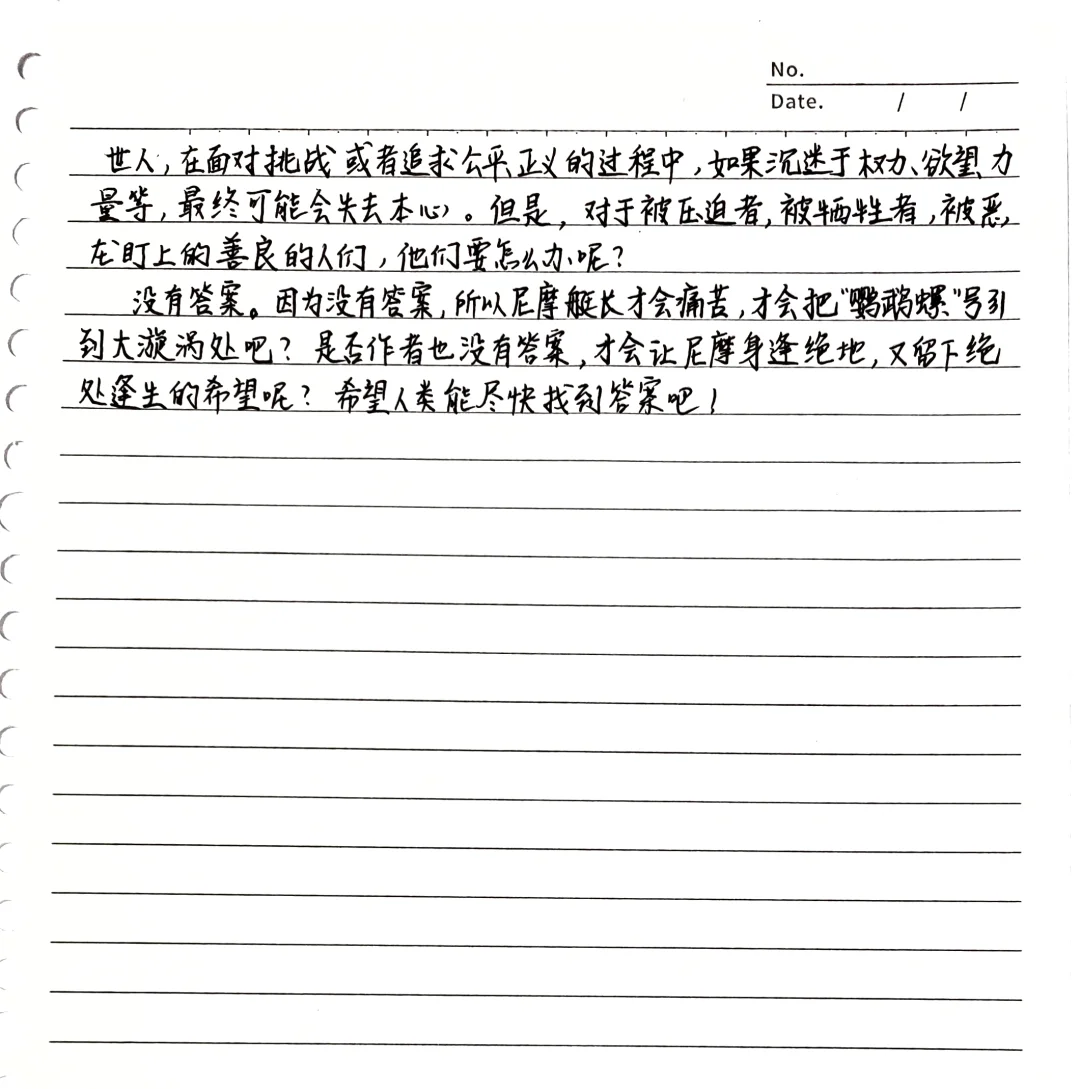 No.
Date. / /
世人，在面对挑战或者追求公平正义的过程中，如果沉迷于权力、欲望、力
量等，最终可能会失去本心。但是，对于被压迫者，被牺牲者，被恶
龙盯上的善良的人们，他们要怎么办呢？
没有答案。因为没有答案，所以尼摩艇长才会痛苦，才会把“鹦鹉螺”号引
到大漩涡处吧？是否作者也没有答案，才会让尼摩身逢绝地，又留下绝
处逢生的希望呢？希望人类能尽快找到答案吧！